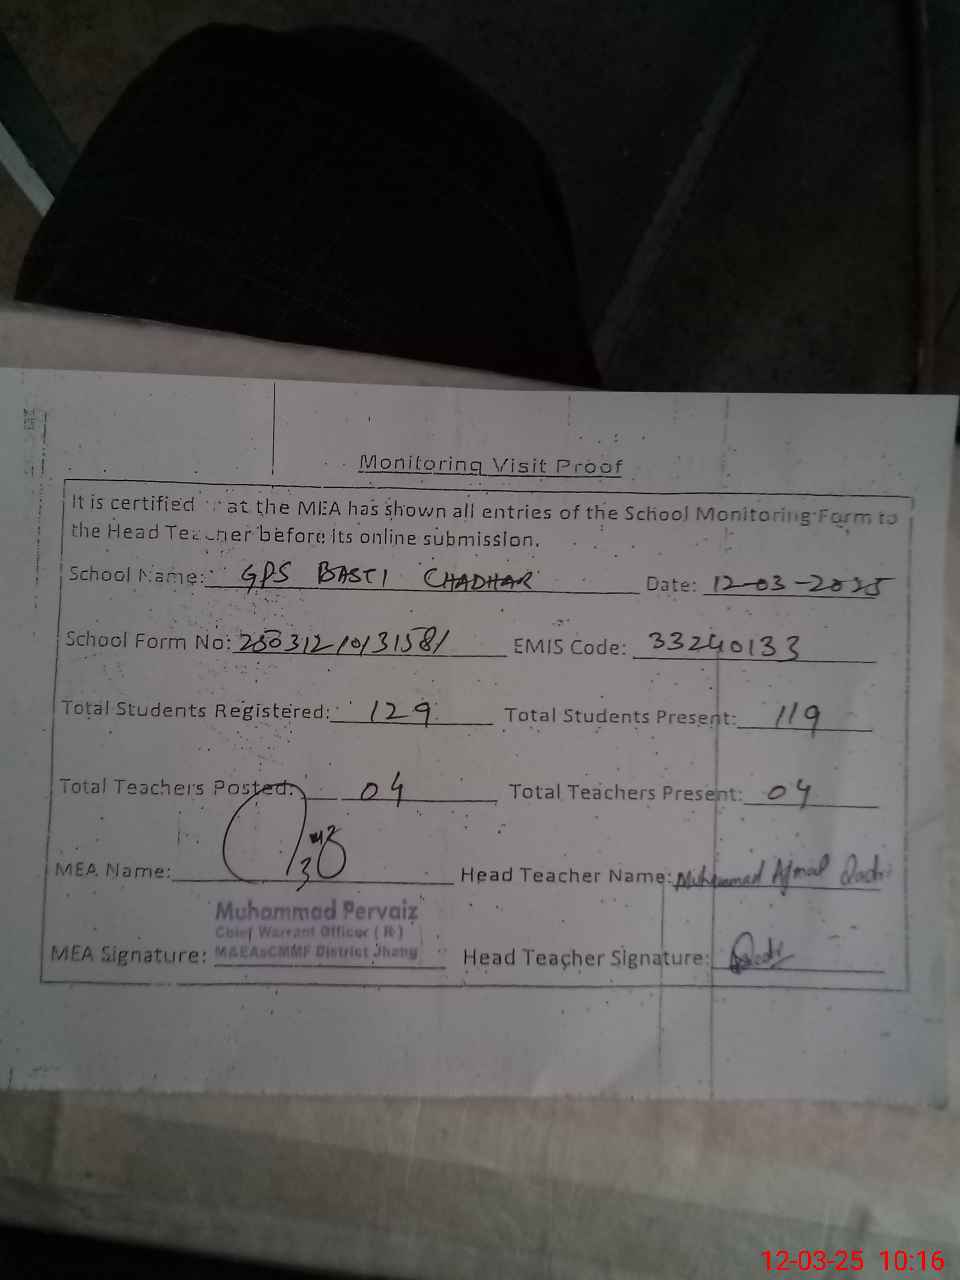 Monitoring Visit Proof
It is certified at the MEA has shown all entries of the School Monitoring Form to
the Head Teacher before its online submission.
School Name: GPS BASTI CHADHAR Date: 12-03-2025
School Form No: 25031210131581 EMIS Code: 33240133
Total Students Registered: 129 Total Students Present: 119
Total Teachers Posted: 04 Total Teachers Present: 04
MEA Name: Head Teacher Name: Muhammad Ajmal Qadri
Muhammad Pervaiz
Chief Warrant Officer (R)
MEA Signature: M&EAsCMMF District Jhang Head Teacher Signature: Qadri
12-03-25 10:16